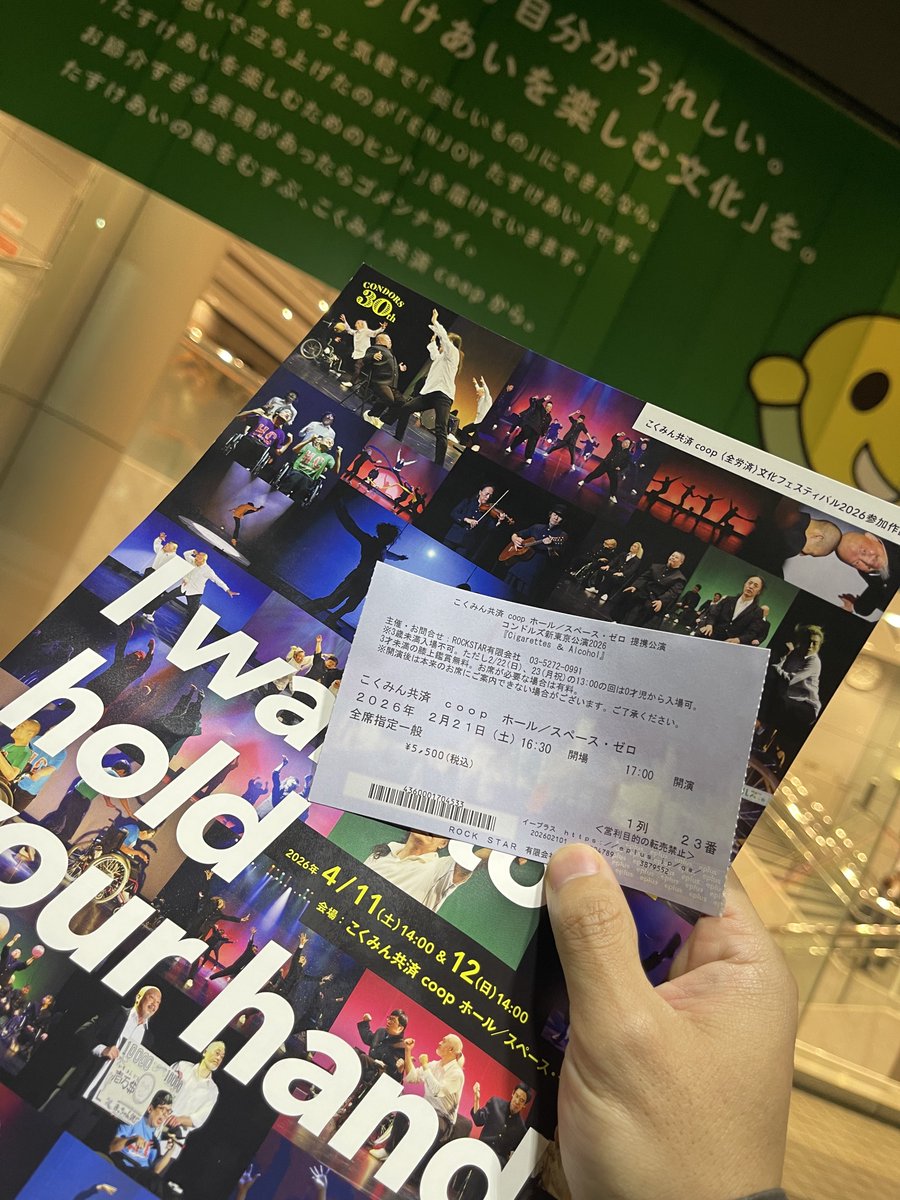 自分がうれしい。
すけあいを楽しむ文化」を。
をもっと気軽で「楽しいもの」にできたなら。
思いで立ち上げたのが「ENJOY たすけあい」です。
「たすけあいを楽しむためのヒント」を届けていきます。
お節介すぎる表現があったらゴメンナサイ。
たすけあいの輪をむすぶ、こくみん共済 coop から。
CONDORS
30th
こくみん共済 coop (全労済)文化フェスティバル2026参加作
I wa
hold
our hand
2026年 4/11(土)14:00 & 12(日)14:00
会場・こくみん共済 coop ホール/スペース・
こくみん共済 coop ホール/スペース・ゼロ 提携公演
コンドルズ新東京公演2026
『Cigarettes & Alcohol』
主催・お問合せ:ROCKSTAR有限会社 03-5272-0991
※3歳未満入場不可。ただし2/22(日)、23(月祝)の13:00の回は0才児から入場可。
3才未満の膝上鑑賞無料。お席が必要な場合は有料。
※開演後は本来のお席にご案内できない場合がございます。ご了承ください。
こくみん共済 coop ホール/スペース・ゼロ
2026年 2月21日(土) 16:30 開場 17:00 開演
全席指定一般
¥5,500(税込)
1列 23番
4360001704533
<営利目的の転売禁止>
ROCK STAR 有限会
イープラス https://eplus.jp/qa/